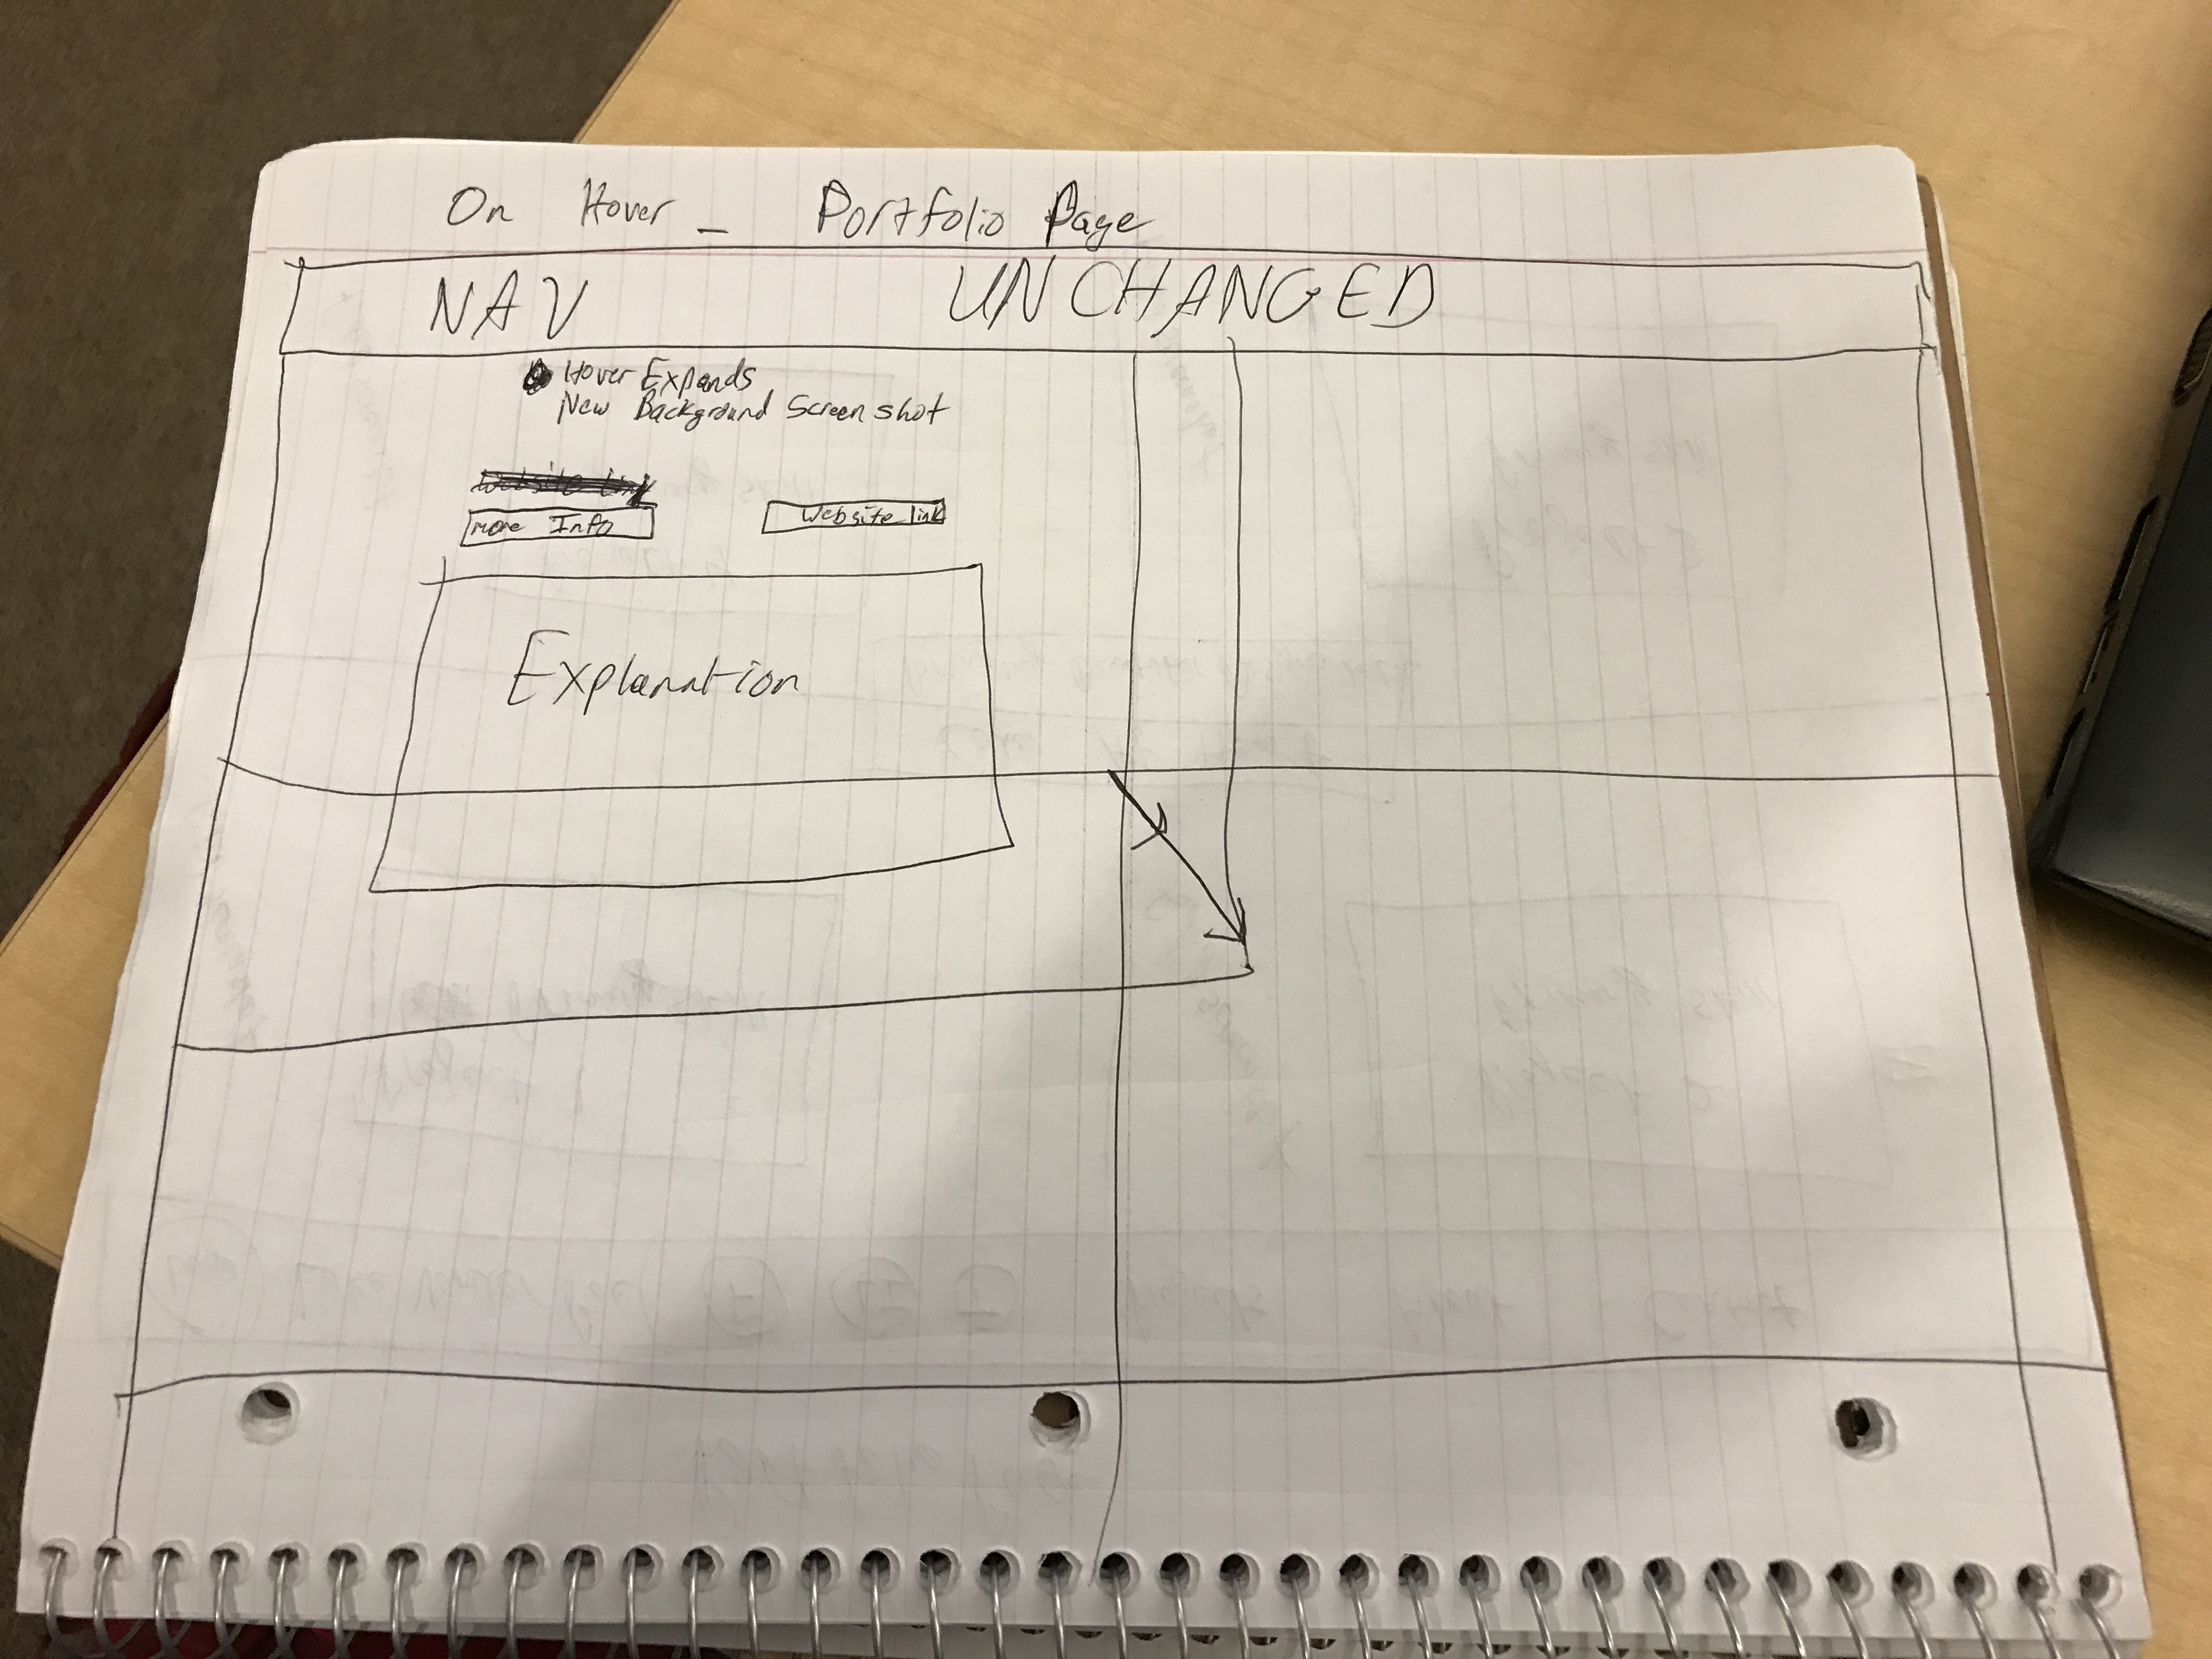 On Hover - Portfolio Page
NAV UNCHANGED
Hover Expands
New Background Screenshot
more Info
Website link
Explanation